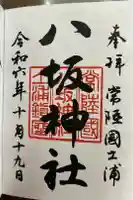 奉拝 常陸國土浦
八坂神社
令和六年十月十九日